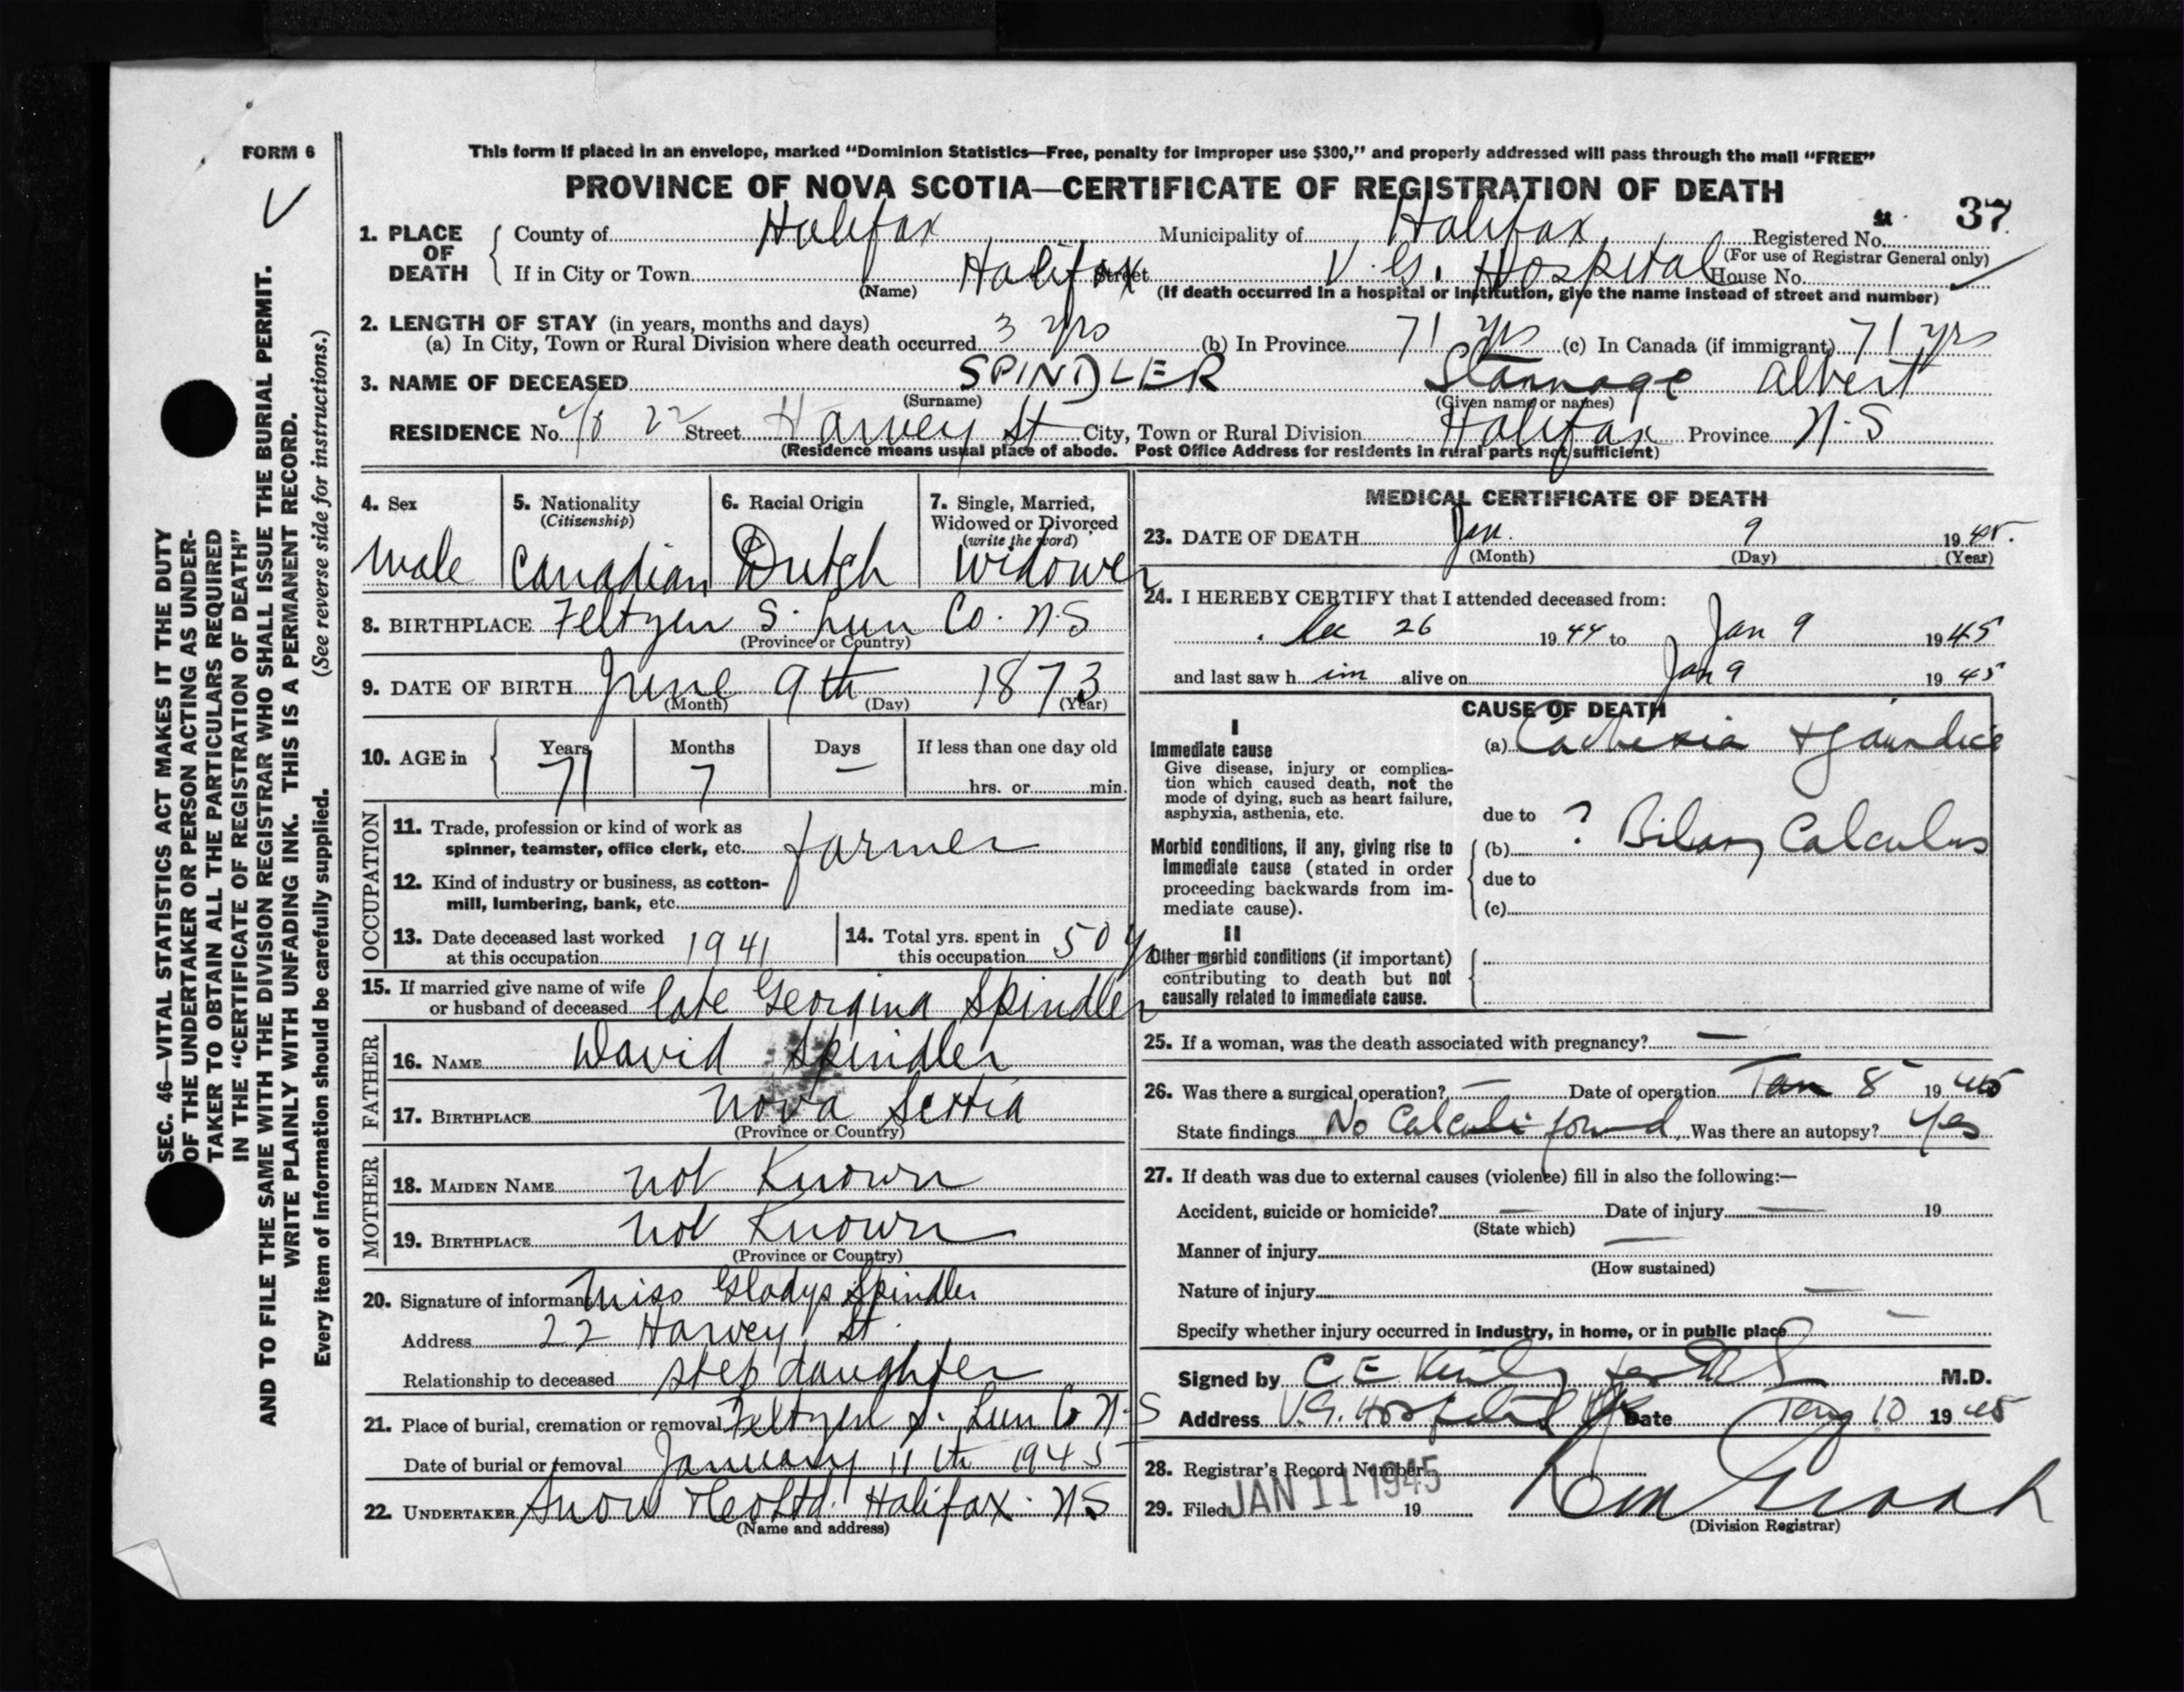 FORM 6
This form if placed in an envelope, marked "Dominion Statistics—Free, penalty for improper use $300," and properly addressed will pass through the mail "FREE"
PROVINCE OF NOVA SCOTIA—CERTIFICATE OF REGISTRATION OF DEATH
37
1. PLACE OF DEATH
County of Halifax Municipality of Halifax Registered No.
(For use of Registrar General only)
If in City or Town Halifax Street V. G. Hospital House No.
(Name) (If death occurred in a hospital or institution, give the name instead of street and number)
2. LENGTH OF STAY (in years, months and days)
(a) In City, Town or Rural Division where death occurred 3 yrs (b) In Province 71 yrs (c) In Canada (if immigrant) 71 yrs
3. NAME OF DECEASED SPINDLER Stannage Albert
(Surname) (Given name or names)
RESIDENCE No. 22 Street Harvey St City, Town or Rural Division Halifax Province N.S
(Residence means usual place of abode. Post Office Address for residents in rural parts not sufficient)
4. Sex
Male
5. Nationality
(Citizenship)
Canadian
6. Racial Origin
Dutch
7. Single, Married,
Widowed or Divorced
(write the word)
Widower
8. BIRTHPLACE Feltzen S. Lun Co. N.S
(Province or Country)
9. DATE OF BIRTH June 9th 1873
(Month) (Day) (Year)
10. AGE in Years Months Days If less than one day old
71 7 — hrs. or min.
OCCUPATION
11. Trade, profession or kind of work as
spinner, teamster, office clerk, etc. farmer
12. Kind of industry or business, as cotton-
mill, lumbering, bank, etc.
13. Date deceased last worked
at this occupation 1941
14. Total yrs. spent in
this occupation 50 y
15. If married give name of wife
or husband of deceased late Georgina Spindler
FATHER
16. NAME David Spindler
17. BIRTHPLACE Nova Scotia
(Province or Country)
MOTHER
18. MAIDEN NAME not Known
19. BIRTHPLACE not Known
(Province or Country)
20. Signature of informant Miss Gladys Spindler
Address 22 Harvey St.
Relationship to deceased step daughter
21. Place of burial, cremation or removal Feltzen S. Lun Co N.S
Date of burial or removal January 11th 1945
22. UNDERTAKER Snow & Co Ltd. Halifax. N.S
(Name and address)
MEDICAL CERTIFICATE OF DEATH
23. DATE OF DEATH Jan. 9 1945.
(Month) (Day) (Year)
24. I HEREBY CERTIFY that I attended deceased from:
Dec 26 1944 to Jan 9 1945
and last saw him alive on Jan 9 1945
CAUSE OF DEATH
I
Immediate cause
Give disease, injury or complica-
tion which caused death, not the
mode of dying, such as heart failure,
asphyxia, asthenia, etc.
(a) Cachexia & Jaundice
due to
Morbid conditions, if any, giving rise to
immediate cause (stated in order
proceeding backwards from im-
mediate cause).
(b) ? Biliary Calculus
due to
(c)
II
Other morbid conditions (if important)
contributing to death but not
causally related to immediate cause.
25. If a woman, was the death associated with pregnancy? —
26. Was there a surgical operation? — Date of operation Jan 8 1945
State findings No Calculi found Was there an autopsy? Yes
27. If death was due to external causes (violence) fill in also the following:—
Accident, suicide or homicide? — Date of injury — 19
(State which)
Manner of injury —
(How sustained)
Nature of injury —
Specify whether injury occurred in industry, in home, or in public place —
Signed by C E M.D.
Address V.G. Hospital Date Jany 10 1945
28. Registrar's Record Number
29. Filed JAN 11 1945 19
(Division Registrar)
SEC. 46—VITAL STATISTICS ACT MAKES IT THE DUTY
OF THE UNDERTAKER OR PERSON ACTING AS UNDER-
TAKER TO OBTAIN ALL THE PARTICULARS REQUIRED
IN THE "CERTIFICATE OF REGISTRATION OF DEATH"
AND TO FILE THE SAME WITH THE DIVISION REGISTRAR WHO SHALL ISSUE THE BURIAL PERMIT.
WRITE PLAINLY WITH UNFADING INK. THIS IS A PERMANENT RECORD.
Every item of information should be carefully supplied. (See reverse side for instructions.)